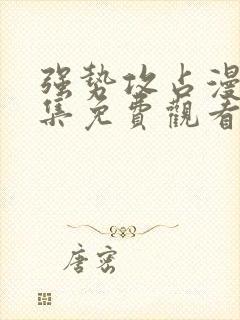 强势攻占漫
集免費觀看
唐密